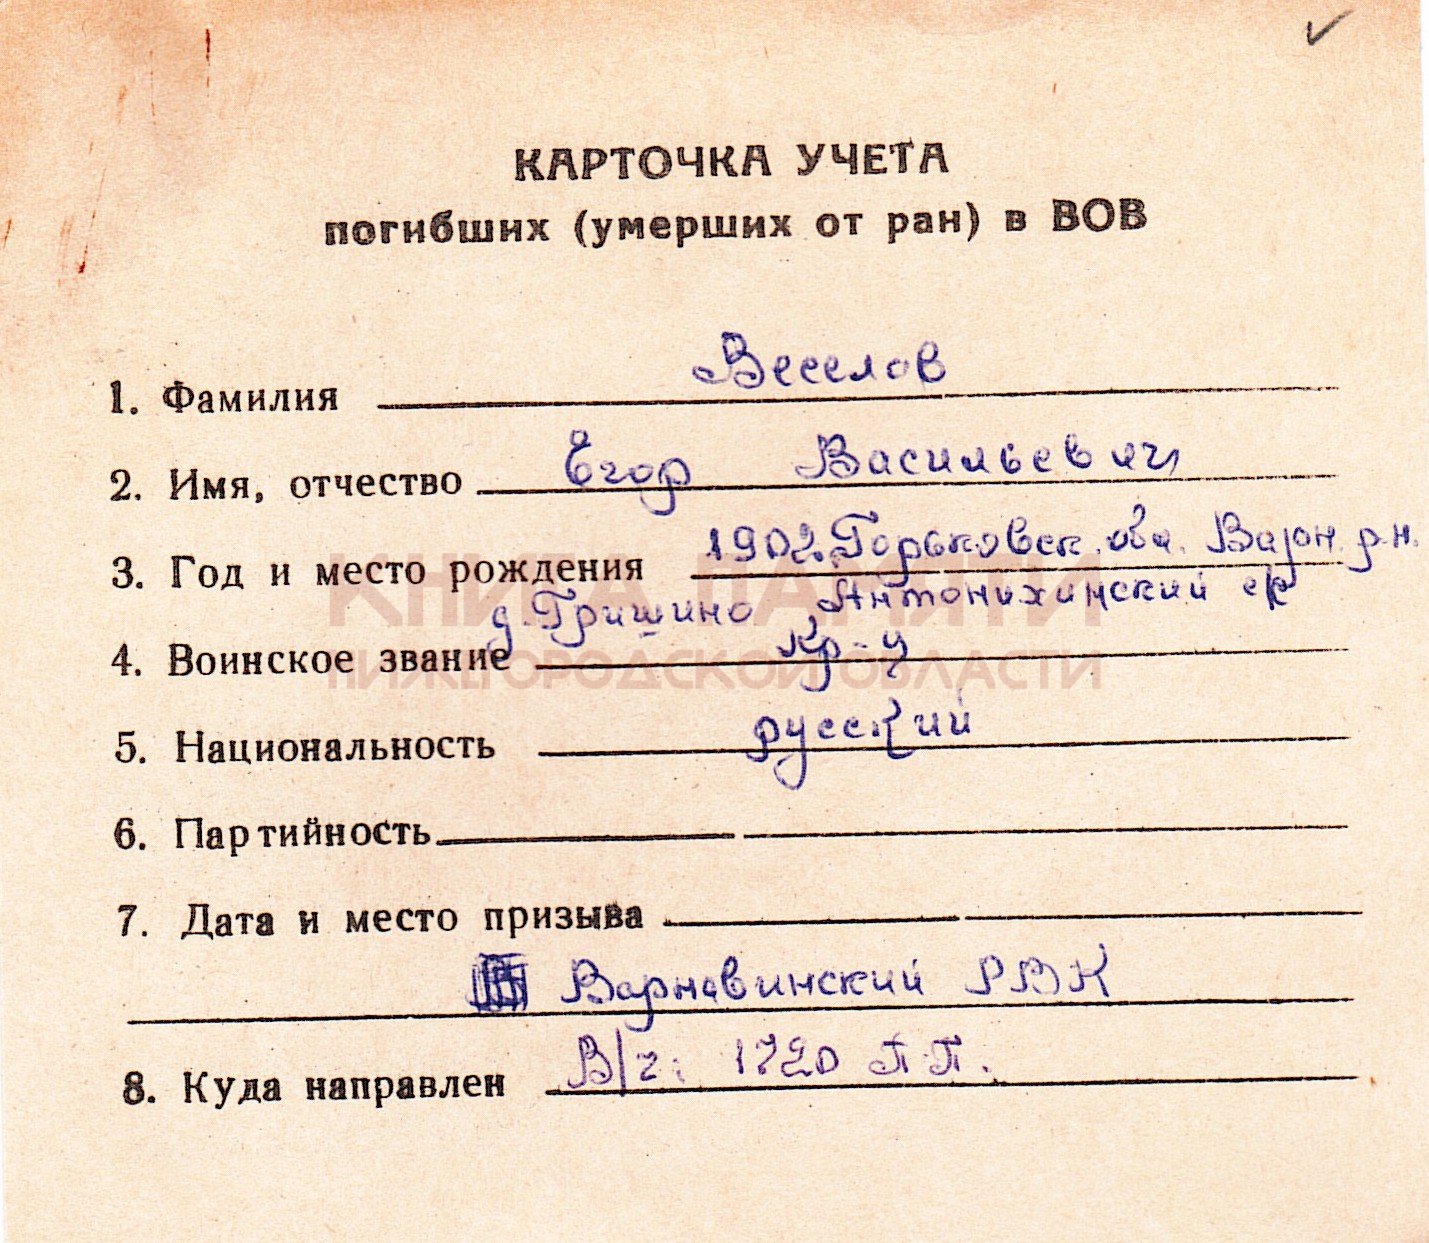 КАРТОЧКА УЧЕТА
погибших (умерших от ран) в ВОВ
1. Фамилия Веселов
2. Имя, отчество Егор Васильевич
3. Год и место рождения 1902 Горьковск. обл. Варн. р-н.
д. Гришино Антонихинский с/с
4. Воинское звание кр-ц
5. Национальность русский
6. Партийность
7. Дата и место призыва
Варнавинский РВК
8. Куда направлен В/ч: 1720 П.П.
КНИГА ПАМЯТИ
НИЖЕГОРОДСКОЙ ОБЛАСТИ